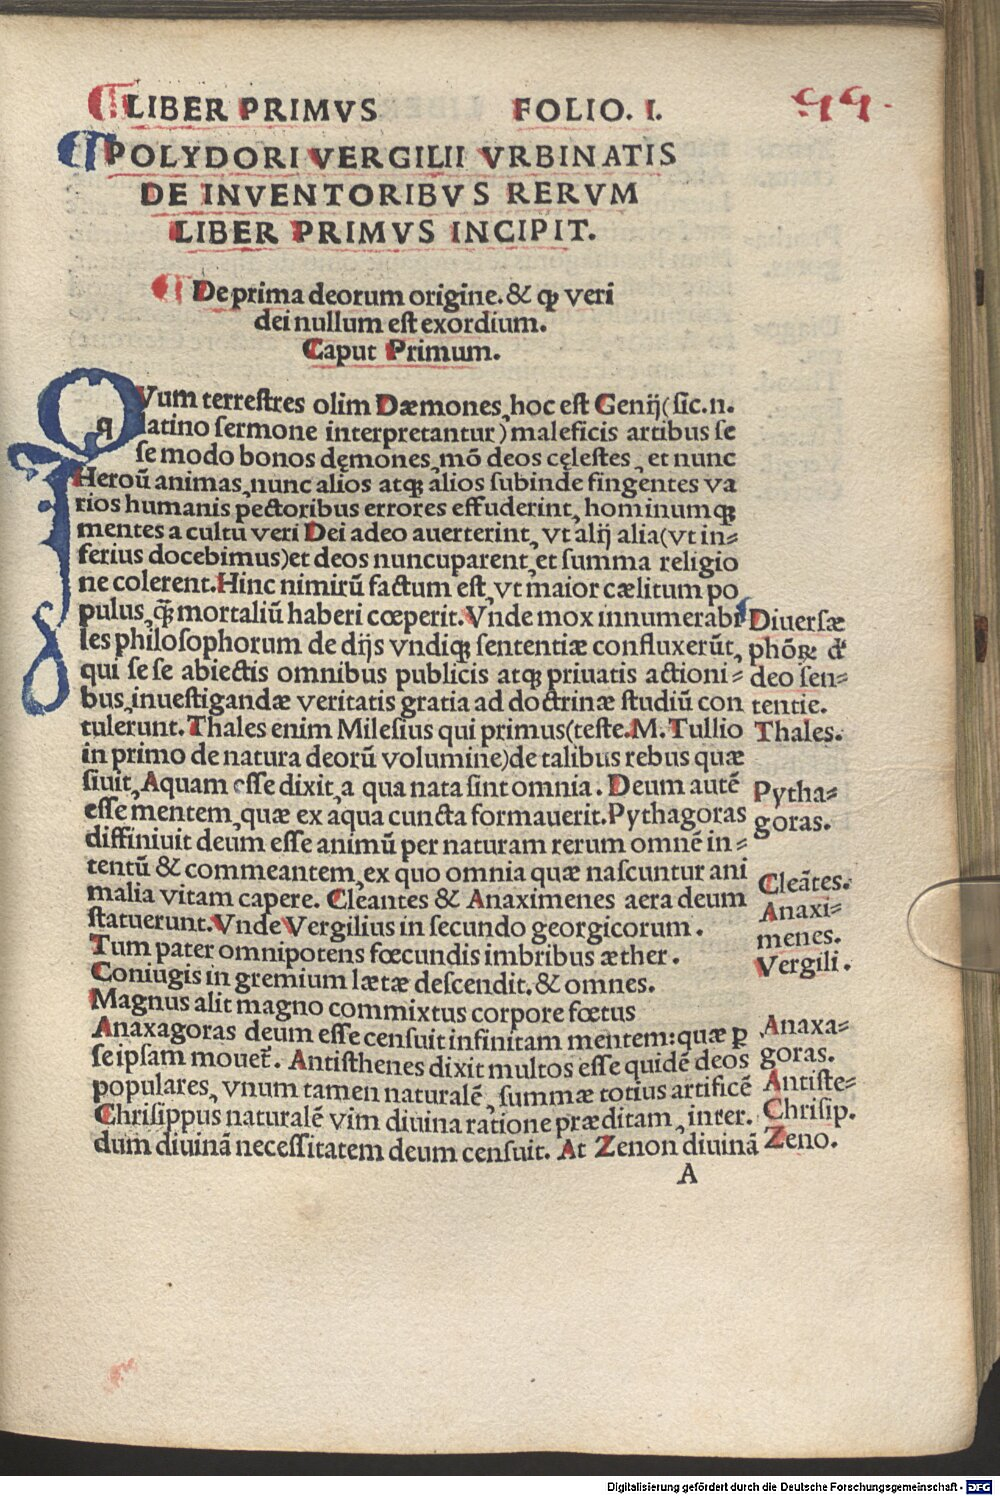 ¶LIBER PRIMVS FOLIO. I. 99.
¶POLYDORI VERGILII VRBINATIS
DE INVENTORIBVS RERVM
LIBER PRIMVS INCIPIT.
¶De prima deorum origine. & ꝙ veri
dei nullum est exordium.
Caput Primum.
QVum terrestres olim Dæmones, hoc est Genij (sic.n.
q latino sermone interpretantur) maleficis artibus se
se modo bonos dęmones, mō deos cęlestes, et nunc
Heroū animas, nunc alios atqꝫ alios subinde fingentes va
rios humanis pectoribus errores effuderint, hominumqꝫ
mentes a cultu veri Dei adeo auerterint, vt alij alia (vt in⸗
ferius docebimus) et deos nuncuparent, et summa religio
ne colerent. Hinc nimirū factum est, vt maior cælitum po
pulus, qꝫ̄ mortaliū haberi cœperit. Vnde mox innumerabi
les philosophorum de dijs vndiqꝫ sententiæ confluxerūt,
qui se se abiectis omnibus publicis atqꝫ priuatis actioni⸗
bus, inuestigandæ veritatis gratia ad doctrinæ studiū con
tulerunt. Thales enim Milesius qui primus (teste. M. Tullio
in primo de natura deorū volumine) de talibus rebus quæ
siuit, Aquam esse dixit, a qua nata sint omnia. Deum autē
esse mentem, quæ ex aqua cuncta formauerit. Pythagoras
diffiniuit deum esse animū per naturam rerum omnē in⸗
tentū & commeantem, ex quo omnia quæ nascuntur ani
malia vitam capere. Cleantes & Anaximenes aera deum
statuerunt. Vnde Vergilius in secundo georgicorum.
Tum pater omnipotens fœcundis imbribus æther.
Coniugis in gremium lætæ descendit. & omnes.
Magnus alit magno commixtus corpore fœtus
Anaxagoras deum esse censuit infinitam mentem: quæ ꝑ
seipsam mouet̄. Antisthenes dixit multos esse quidē deos
populares, vnum tamen naturalē, summæ totius artificē
Chrisippus naturalē vim diuina ratione præditam, inter.
dum diuinā necessitatem deum censuit. At Zenon diuinā
A
Diuersæ
phōꝝ d'
deo sen⸗
tentie.
Thales.
Pytha⸗
goras.
Cleātes.
Anaxi⸗
menes.
Vergili.
Anaxa⸗
goras.
Antiste⸗
Chrisip.
Zeno.
Digitalisierung gefördert durch die Deutsche Forschungsgemeinschaft - DFG